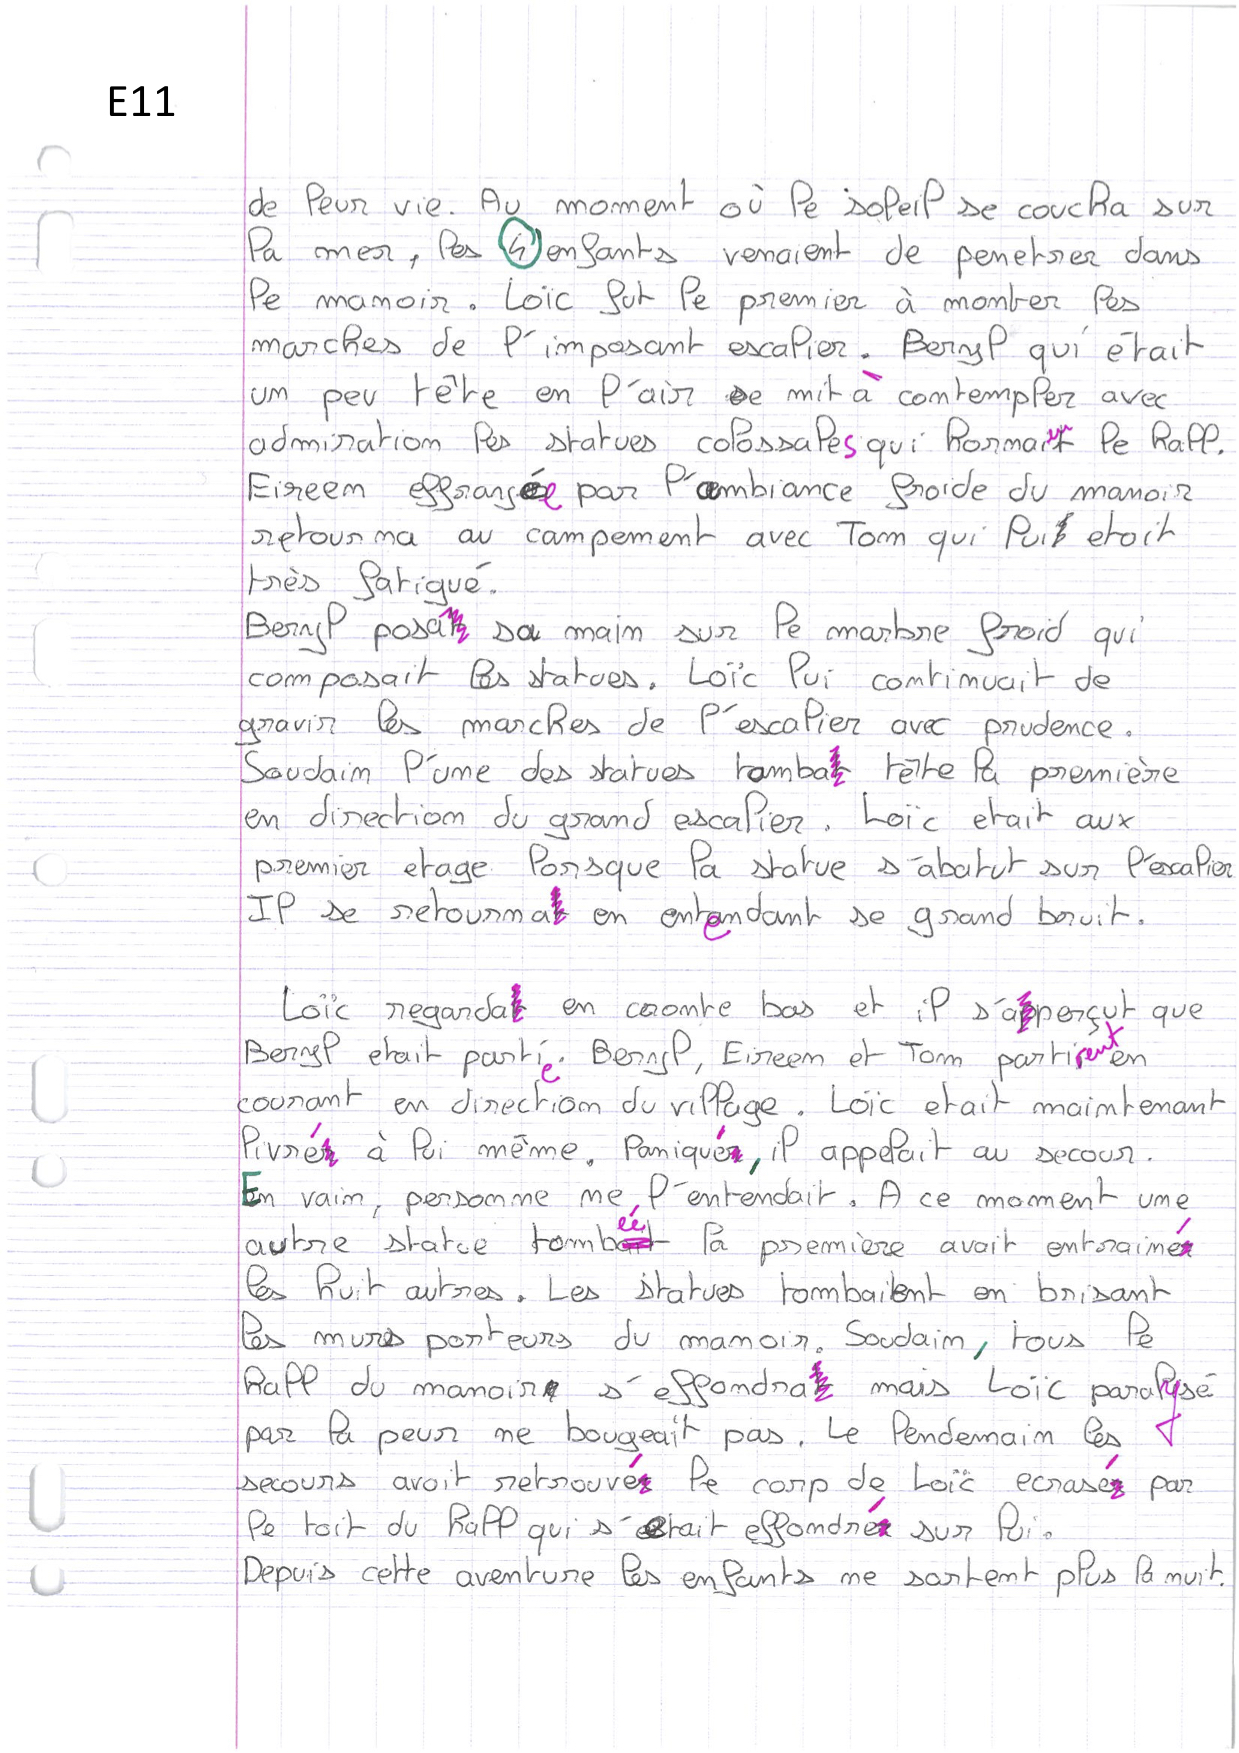 E11
de leur vie. Au moment où le soleil se coucha sur
la mer, les 4 enfants venaient de penetrer dans
le manoir. Loïc fut le premier à monter les
marches de l'imposant escalier. Beryl qui était
un peu tête en l'air se mit à contempler avec
admiration les statues colossales qui hormait le hall.
Eireem effrayée par l'ambiance froide du manoir
retourna au campement avec Tom qui lui etait
très fatigué.
Beryl posa sa main sur le marbre froid qui
composait les statues. Loïc lui continuait de
gravir les marches de l'escalier avec prudence.
Soudain l'une des statues tomba tête la première
en direction du grand escalier. Loïc etait aux
premier etage lorsque la statue s'abatut sur l'escalier
Il se retourna en entendant se grand bruit.
Loïc regarda en contre bas et il s'aperçut que
Beryl etait partie. Beryl, Eireem et Tom partirent en
courant en direction du village. Loïc etait maintenant
livré à lui même. Paniqué, il appelait au secour.
En vain, personne ne l'entendait. A ce moment une
autre statue tombée la première avait entrainé
les huit autres. Les statues tombaient en brisant
les murs porteurs du manoir. Soudain, tous le
hall du manoir s'effondra mais Loïc paralysé
par la peur ne bougeait pas. Le lendemain les
secours avait retrouvé le corp de Loïc ecrasé par
le toit du hall qui s'etait effondré sur lui.
Depuis cette aventure les enfants ne sortent plus la nuit.